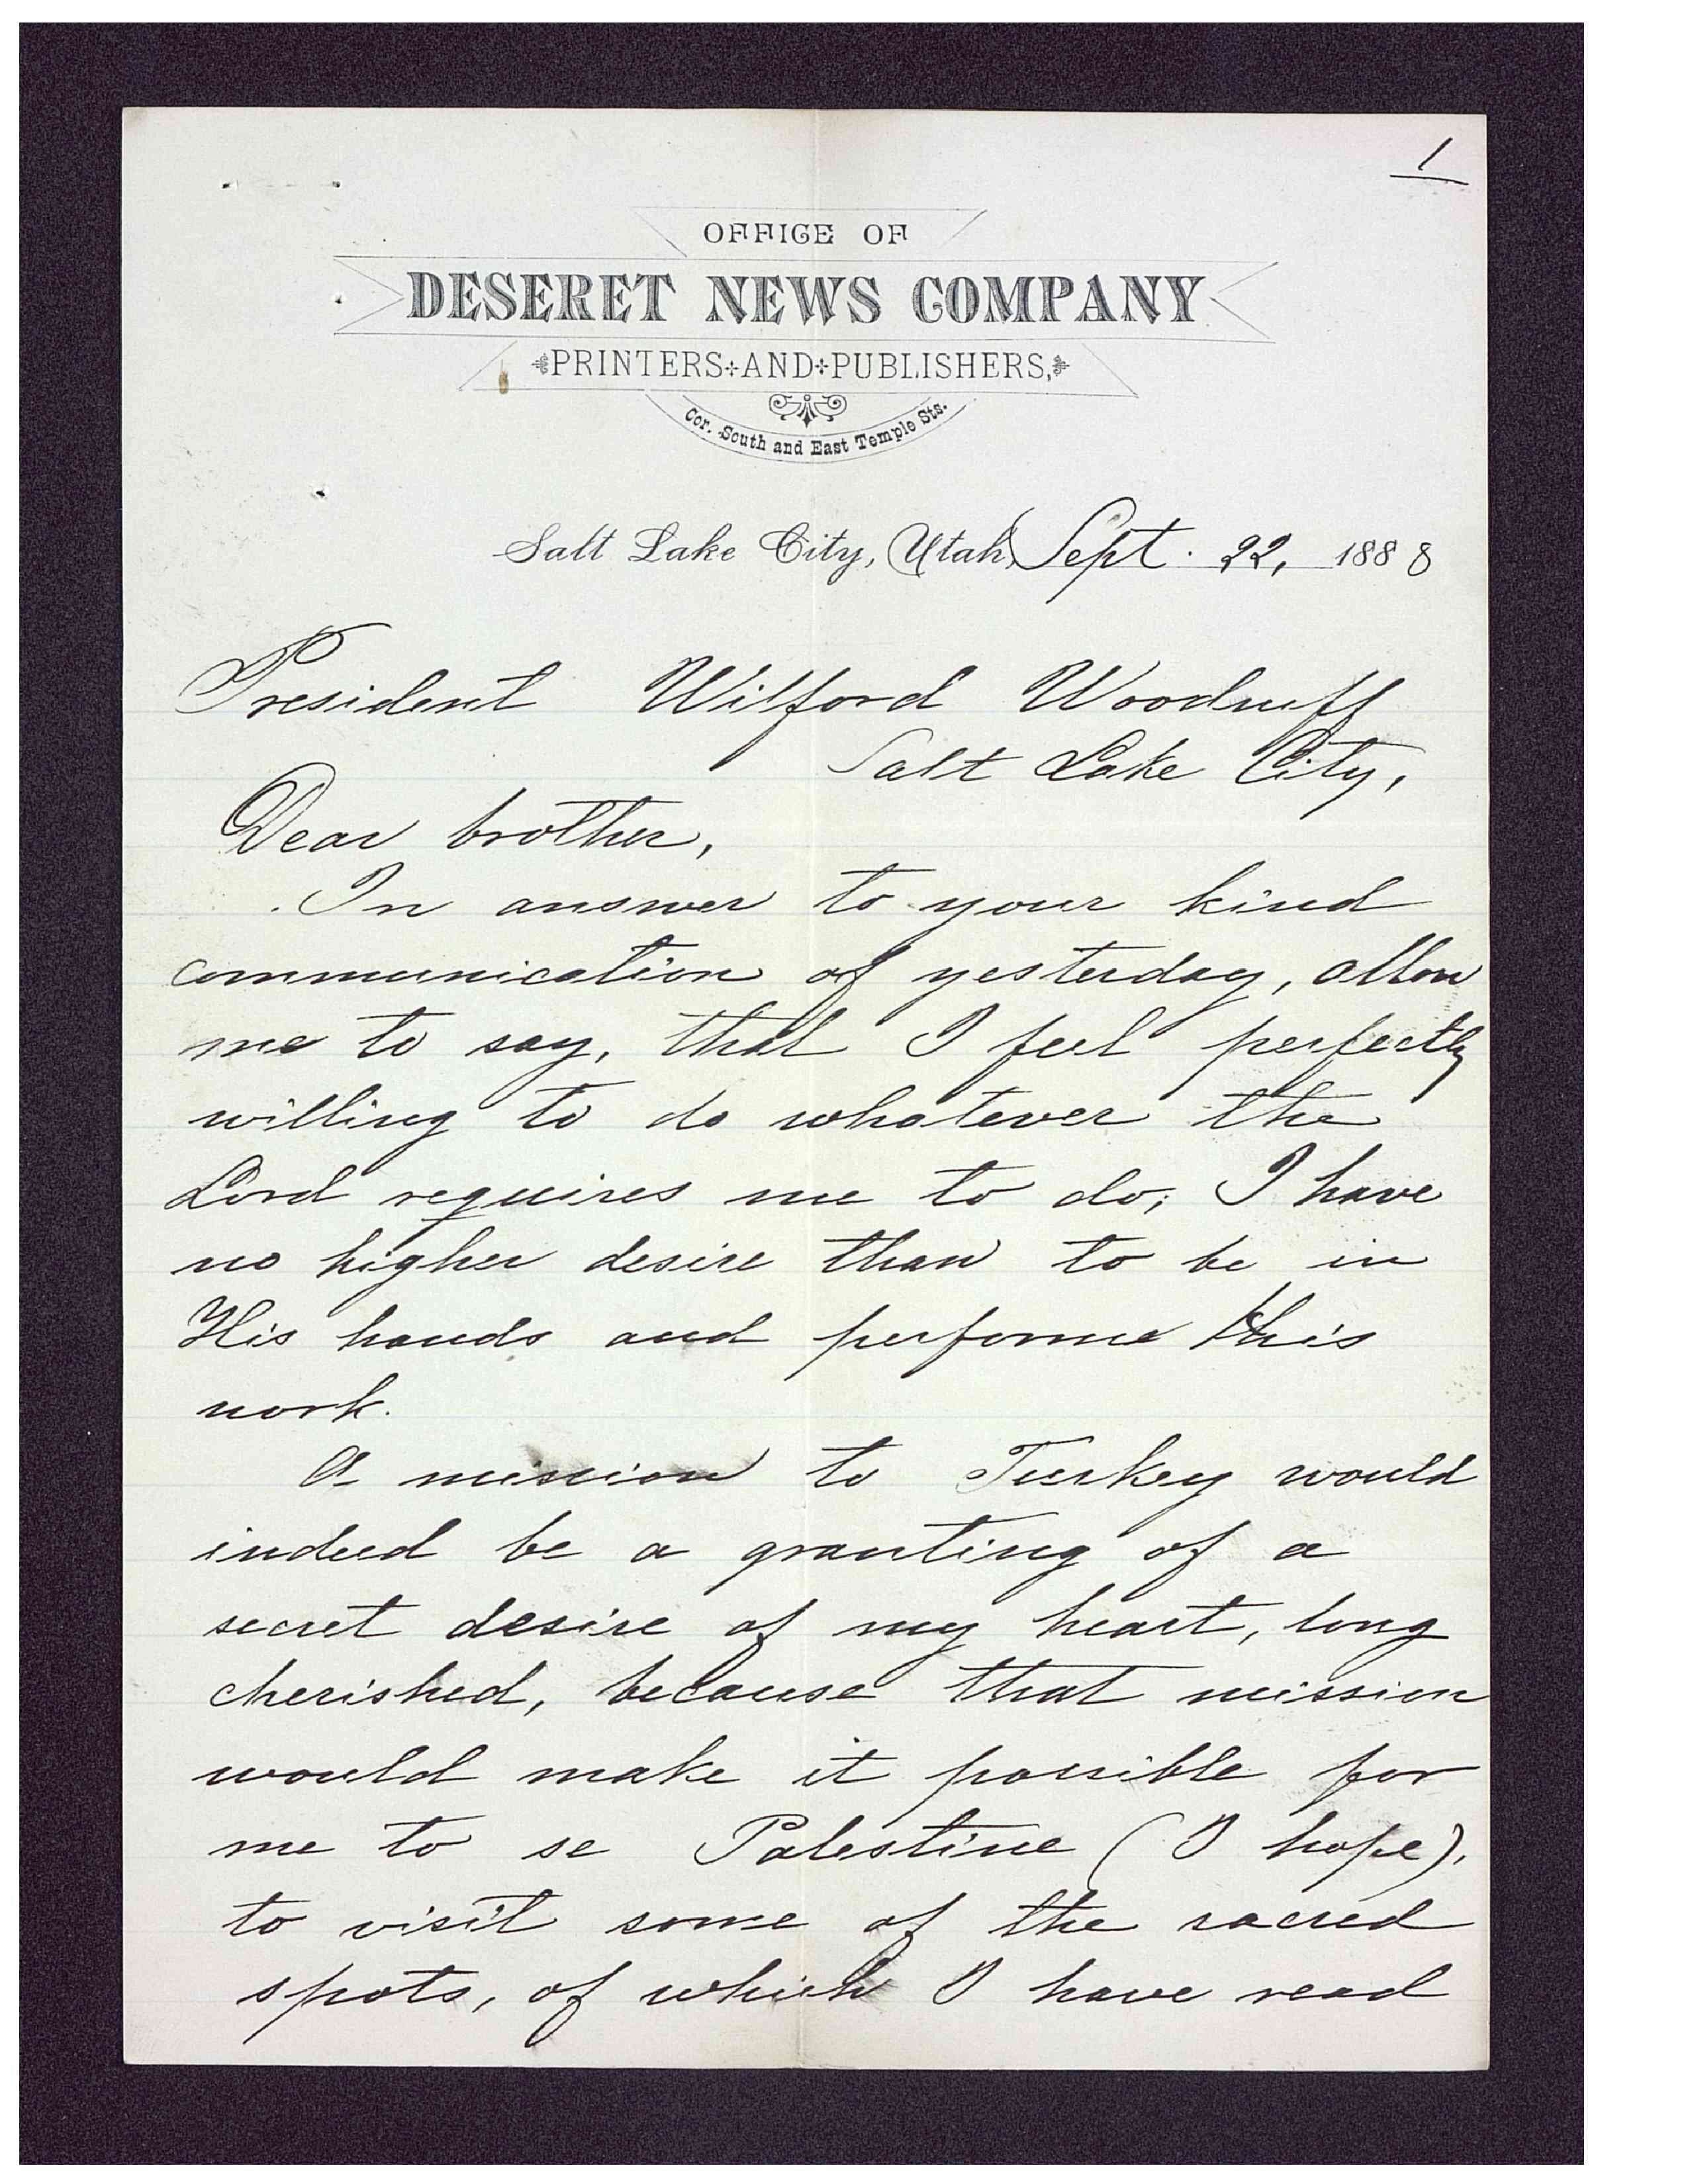 1
OFFICE OF
DESERET NEWS COMPANY
PRINTERS AND PUBLISHERS,
Cor. South and East Temple Sts.
Salt Lake City, Utah, Sept. 22, 1888
President Wilford Woodruff
Salt Lake City,
Dear brother,
In answer to your kind
communication of yesterday, allow
me to say, that I feel perfectly
willing to do whatever the
Lord requires me to do; I have
no higher desire than to be in
His hands and performe this
work.
A mission to Turkey would
indeed be a granting of a
secret desire of my heart, long
cherished, because that mission
would make it possible for
me to se Palestine (I hope),
to visit some of the sacred
spots, of which I have read